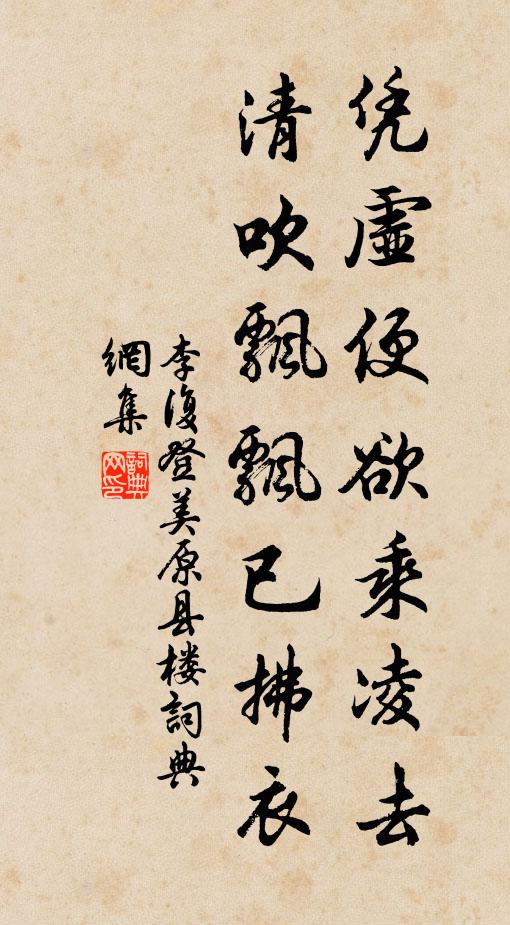 凭虚便欲乘凌去
清吹飘飘已拂衣
李復登美原县楼詞典
網集
詞典网印